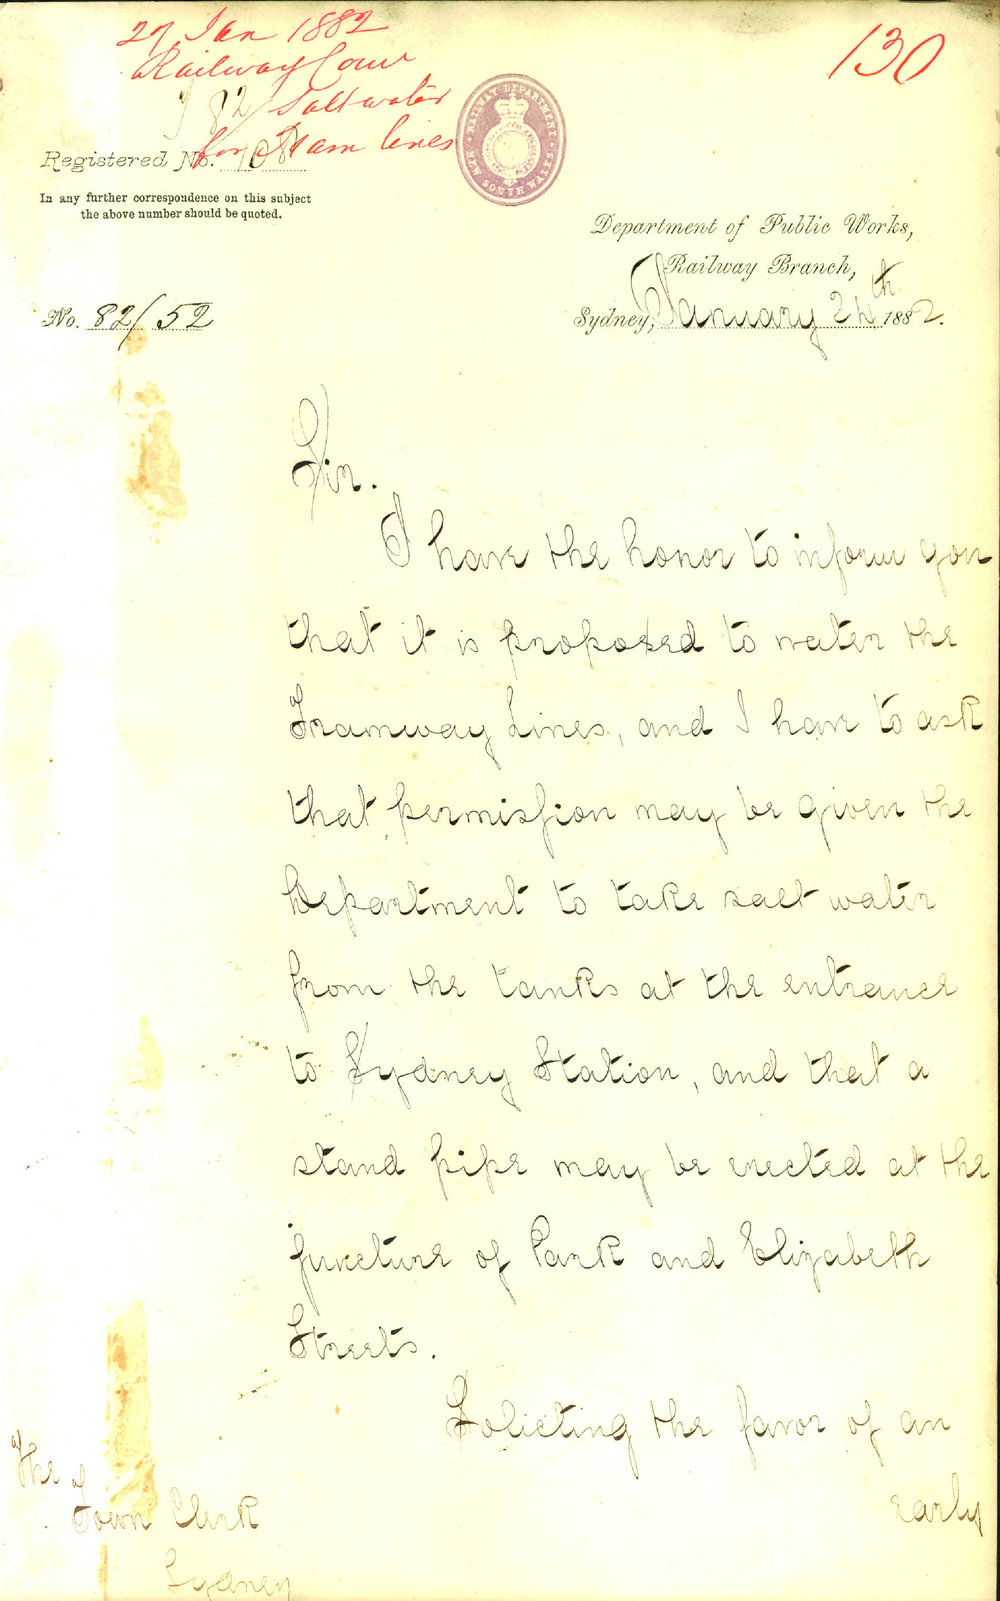 27 Jan 1882
Railway Comr
Salt water
for Tram lines
130
82/
Registered No. 108
In any further correspondence on this subject
the above number should be quoted.
RAILWAY DEPARTMENT
NEW SOUTH WALES
Department of Public Works,
Railway Branch,
Sydney, January 24th 1882.
No. 82/52
Sir.
I have the honor to inform you
that it is proposed to water the
Tramway Lines, and I have to ask
that permission may be given the
Department to take salt water
from the tanks at the entrance
to Sydney Station, and that a
stand pipe may be erected at the
juncture of Park and Elizabeth
Streets.
Soliciting the favor of an
early
The
Town Clerk
Sydney